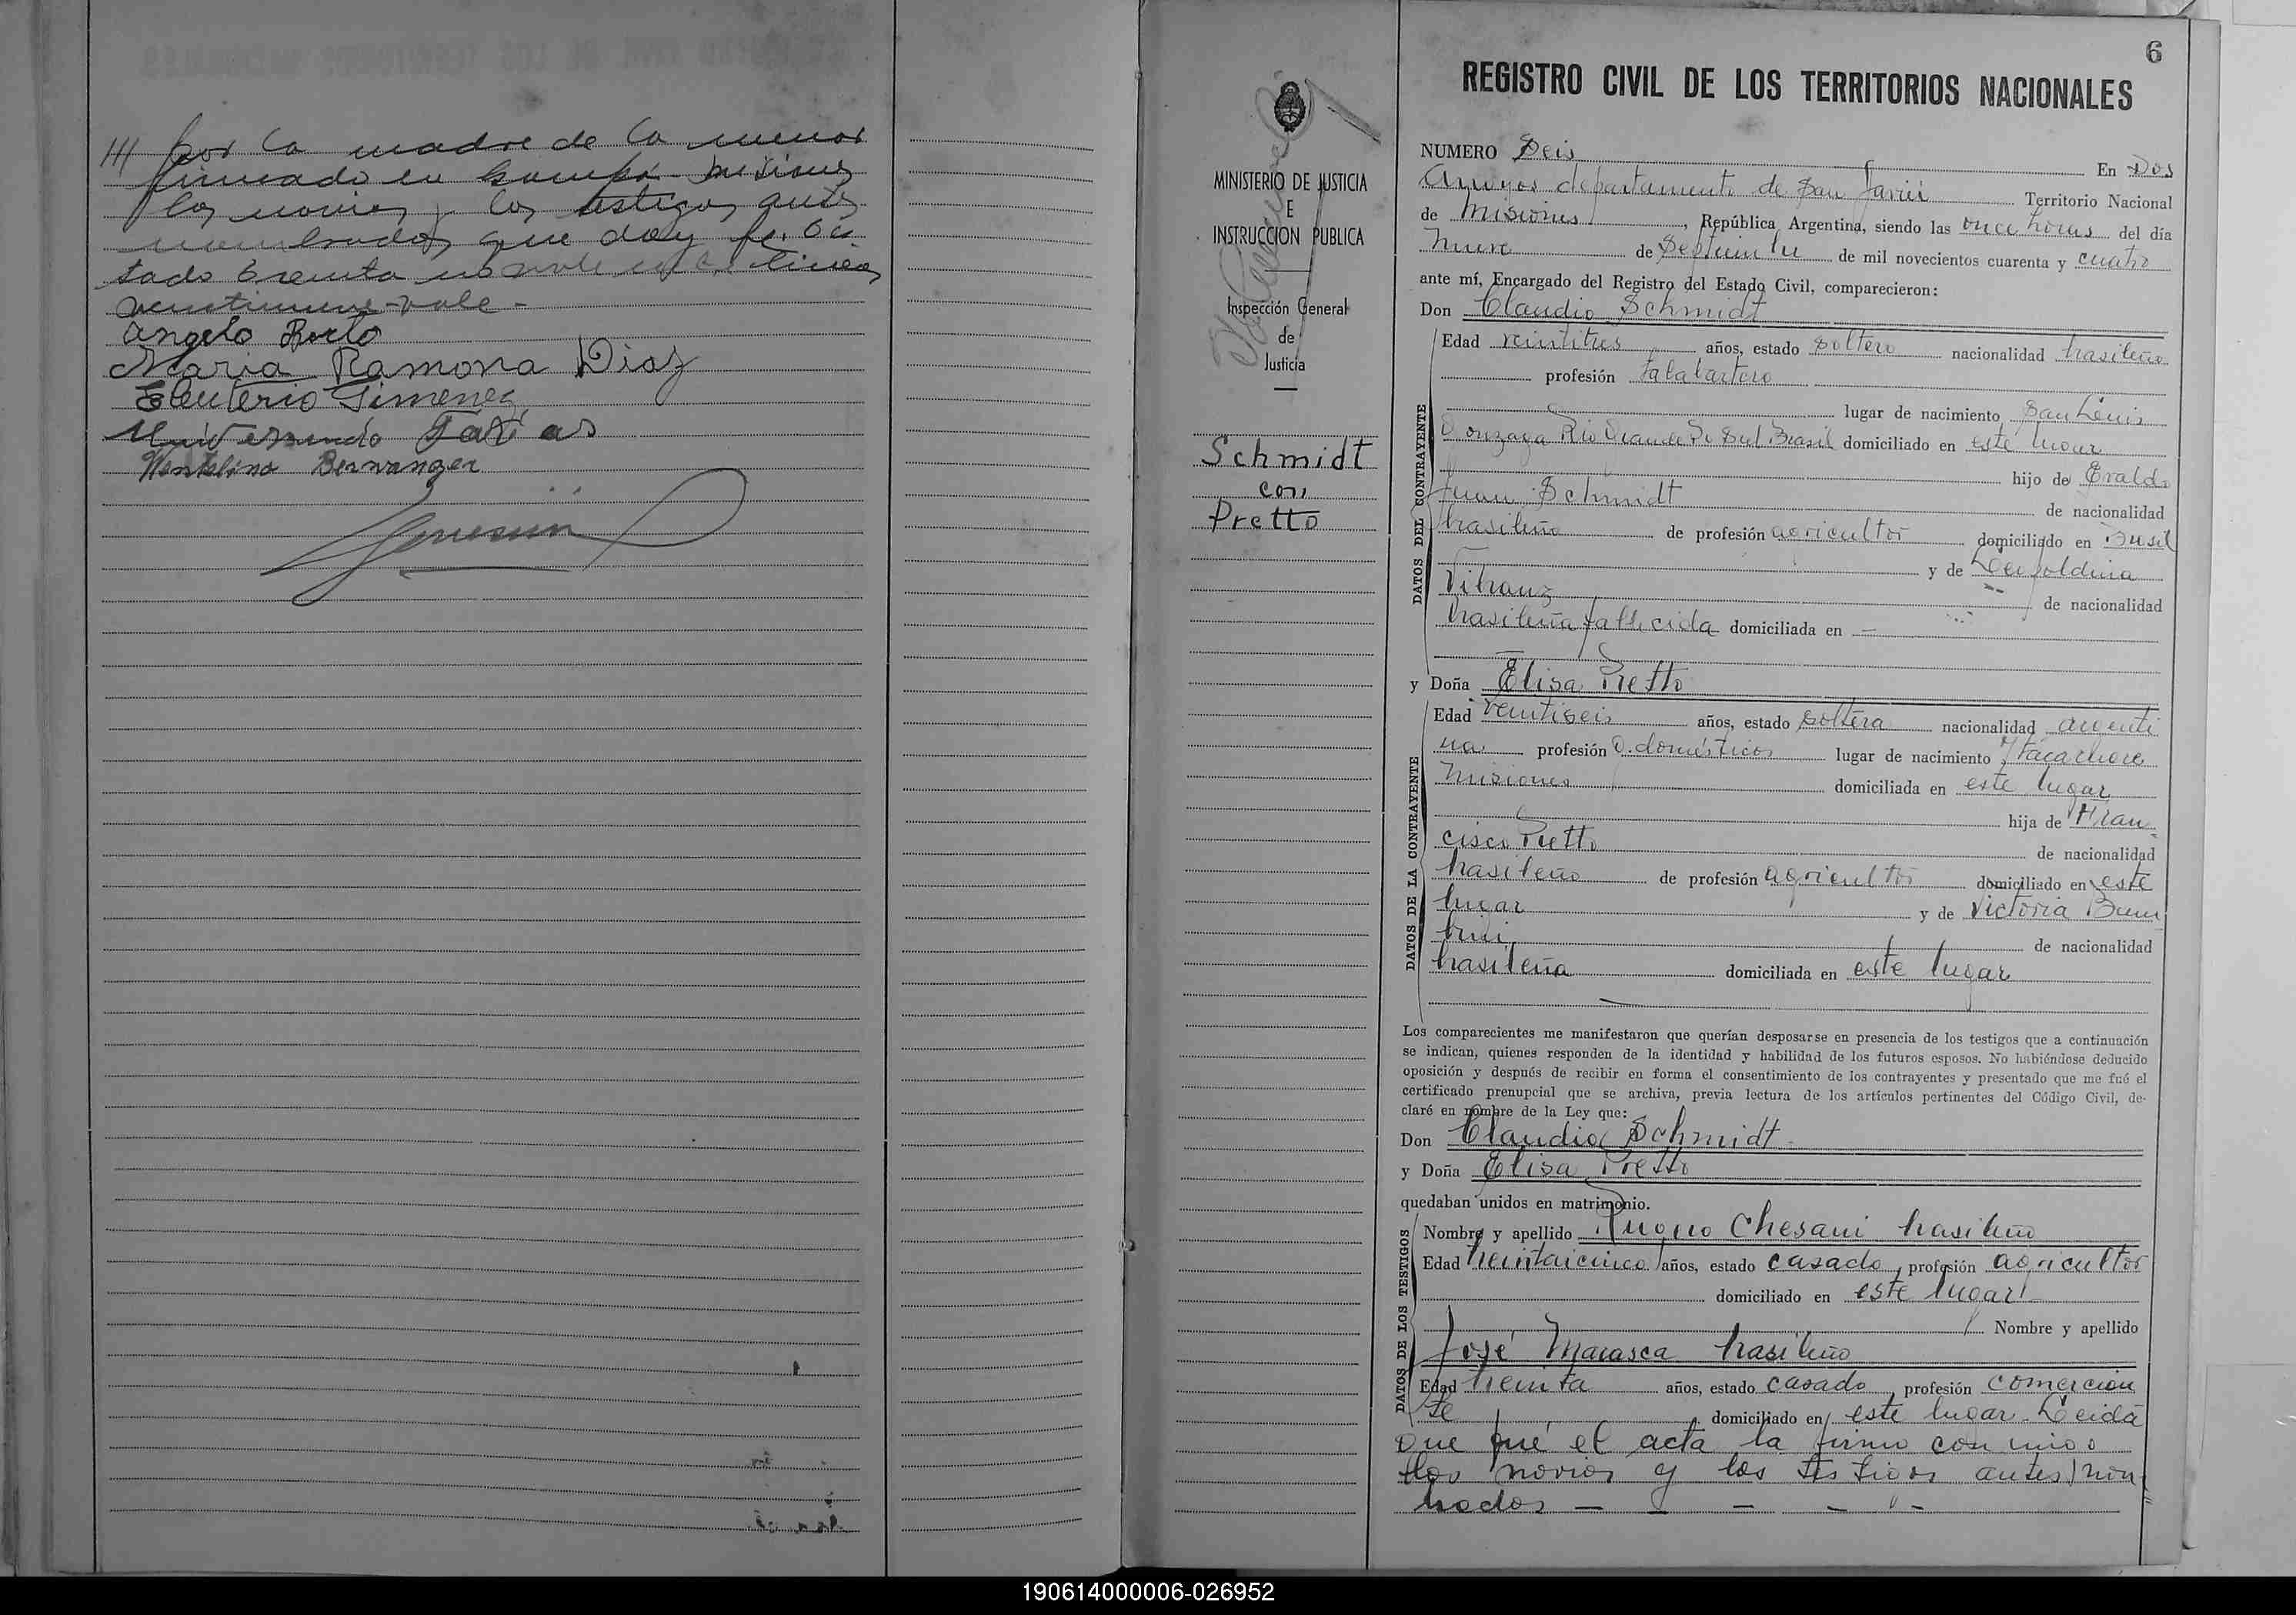 /// por la madre de la menor
firmado en
los novios y los testigos antes
nombrados que doy fe.
tado treinta no vale
veintinueve - vale -
Angelo
Maria Ramona Diaz
Eleuterio Gimenez
Farias
Wentelino Berwanger
MINISTERIO DE JUSTICIA
E
INSTRUCCION PUBLICA
Inspección General
de
Justicia
Schmidt
con
Pretto
6
REGISTRO CIVIL DE LOS TERRITORIOS NACIONALES
NUMERO Seis En Dos
Arroyos departamento de San Javier Territorio Nacional
de Misiones, República Argentina, siendo las once horas del día
nueve de Septiembre de mil novecientos cuarenta y cuatro
ante mí, Encargado del Registro del Estado Civil, comparecieron:
Don Claudio Schmidt
DATOS DEL CONTRAYENTE
Edad veintitres años, estado soltero nacionalidad brasileño
profesión talabartero
lugar de nacimiento San Louis
Gonzaga Rio Grande Do Sul Brasil domiciliado en este lugar
hijo de Evaldo
Juan Schmidt de nacionalidad
brasileño de profesión agricultor domiciliado en Brasil
y de Leopoldina
de nacionalidad
brasileña fallecida domiciliada en -
y Doña Elisa Pretto
DATOS DE LA CONTRAYENTE
Edad veintiseis años, estado soltera nacionalidad argenti
na profesión Q. domésticos lugar de nacimiento Itacaruaré
Misiones domiciliada en este lugar
hija de Fran-
cisco Pretto de nacionalidad
brasileño de profesión agricultor domiciliado en este
lugar y de Victoria
de nacionalidad
brasileña domiciliada en este lugar
Los comparecientes me manifestaron que querían desposarse en presencia de los testigos que a continuación
se indican, quienes responden de la identidad y habilidad de los futuros esposos. No habiéndose deducido
oposición y después de recibir en forma el consentimiento de los contrayentes y presentado que me fué el
certificado prenupcial que se archiva, previa lectura de los artículos pertinentes del Código Civil, de-
claré en nombre de la Ley que:
Don Claudio Schmidt
y Doña Elisa Pretto
quedaban unidos en matrimonio.
DATOS DE LOS TESTIGOS
Nombre y apellido Chesani brasileño
Edad treintaicinco años, estado casado, profesión agricultor
domiciliado en este lugar
Nombre y apellido
José Marasca brasileño
Edad treinta años, estado casado, profesión comercian
te domiciliado en este lugar. Leida
que fué el acta la firmo con migo
los novios y los testigos antes nom-
brados - - - -
190614000006-026952